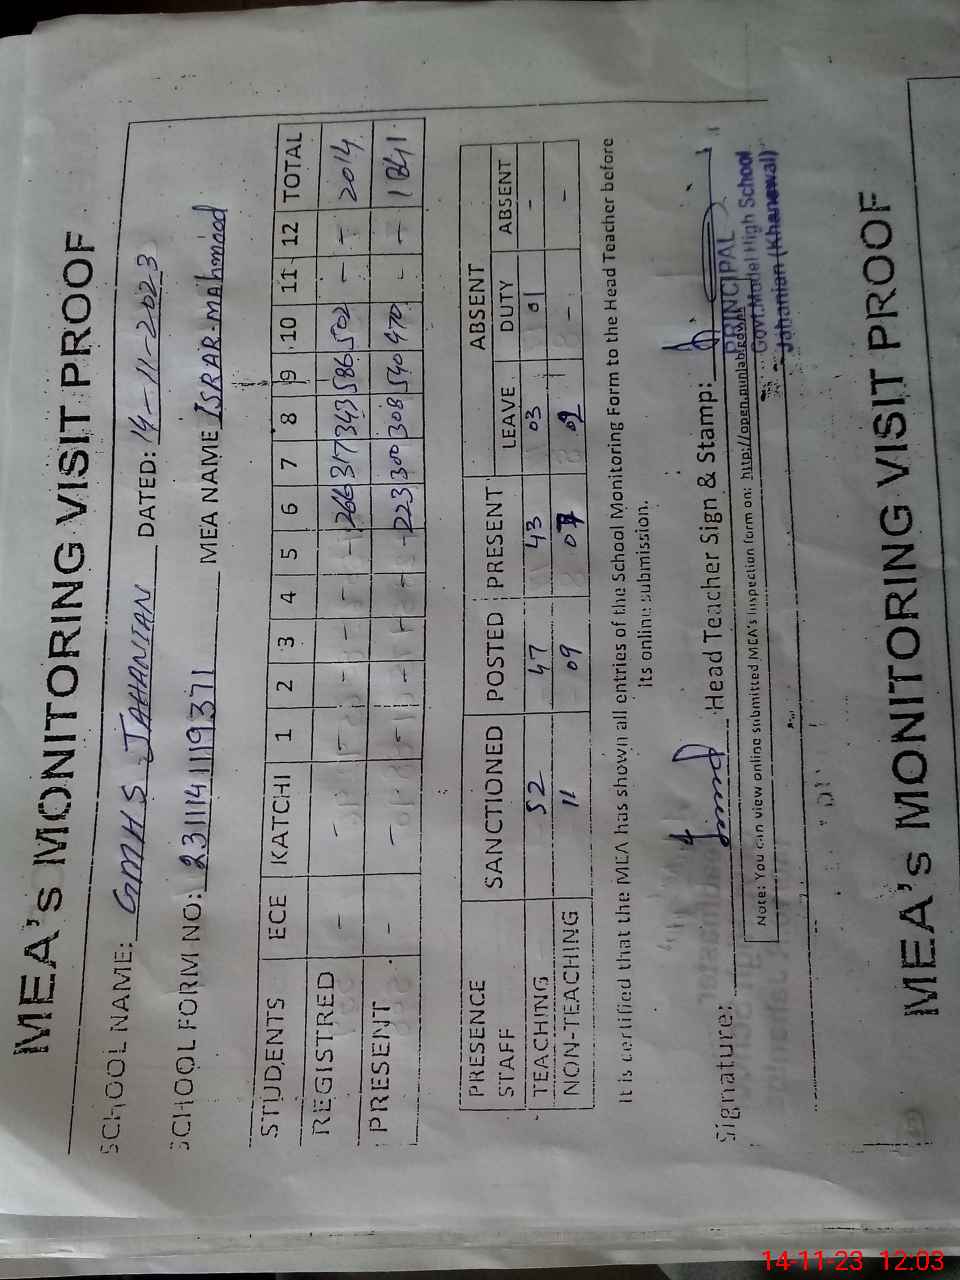 MEA's MONITORING VISIT PROOF
SCHOOL NAME: GMHS JAHANIAN DATED: 14-11-2023
SCHOOL FORM NO: 2311141119371 MEA NAME ISRAR-MAHMOOD
STUDENTS ECE KATCHI 1 2 3 4 5 6 7 8 9 10 11 12 TOTAL
REGISTRED - - - - - - - 266 317 343 586 502 - - 2014
PRESENT - - - - - - - 223 300 308 540 470 - - 1841
PRESENCE SANCTIONED POSTED PRESENT ABSENT
STAFF LEAVE DUTY ABSENT
TEACHING 52 47 43 03 01 -
NON-TEACHING 11 09 07 02 - -
It is certified that the MEA has shown all entries of the School Monitoring Form to the Head Teacher before
its online submission.
Signature: Head Teacher Sign & Stamp:
PRINCIPAL
Govt.Model High School
Jahanian (Khanewal)
Note: You can view online submitted MEA's inspection form on: http://open.punjab.gov.pk
MEA's MONITORING VISIT PROOF
14-11-23 12:03